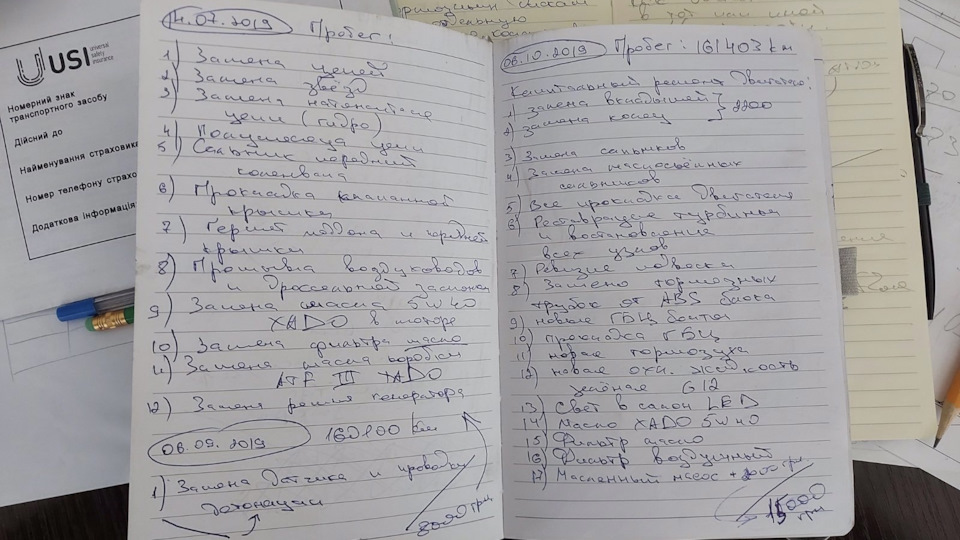 USI universal safety insurance
Номерний знак
транспортного засобу
Дійсний до
Найменування страховика
Номер телефону страхо
Додаткова інформація
14.07.2019 Пробег:
1) Замена цепей
2) Замена звёзд
3) Замена натяжителя
цепи (гидро)
4) Полумесяца цепи
5) Сальник передний
коленвала
6) Прокладка клапанной
крышки
7) Гермет поддона и передней
крышки
8) Промывка воздуховодов
и дроссельной заслонки
9) Замена масла 5w40
XADO в моторе
10) Замена фильтра масло
11) Замена масла коробки
ATF III XADO
12) Замена ремня генератора
06.09.2019 160100 km
1) Замена датчика и проводки
детонации
3000 грн
06.10.2019 Пробег: 161403 km
Капитальный ремонт двигателя:
1) Замена вкладышей
2) Замена колец } 2200
3) Замена сальников
4) Замена маслосъёмных
сальников
5) Все прокладки двигателя
6) Реставрация турбины
востановление
всех узлов
7) Ревизия подвески
8) Замена тормозных
трубок от ABS блока
9) Новые ГБЦ болты
10) Прокладка ГБЦ
11) новая тормозуха
12) новая охл. жидкость
зелёная G12
13) Свет в салон LED
14) Масло XADO 5w40
15) Фильтр масло
16) Фильтр воздушный
17) Масленный насос + 2000 грн
15000
грн